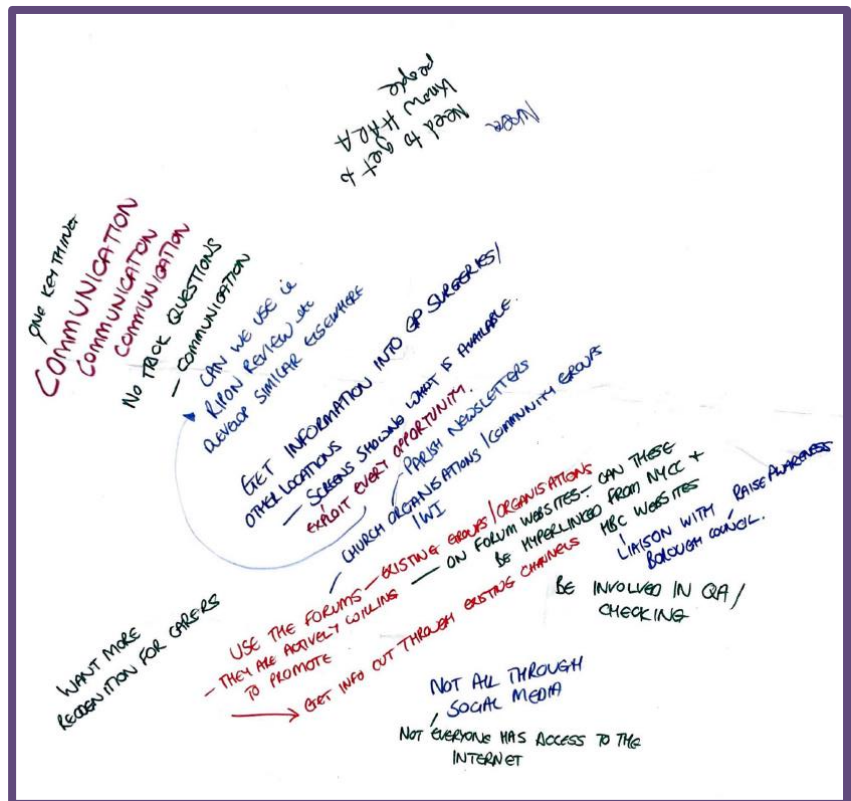 Need to get to
know HARA
people
ONE KEY THING
COMMUNICATION
COMMUNICATION
COMMUNICATION
NO TRICK QUESTIONS
— COMMUNICATION
CAN WE USE ie
RIPON REVIEW etc
DEVELOP SIMILAR ELSEWHERE
GET INFORMATION INTO GP SURGERIES/
OTHER LOCATIONS
— SCREENS SHOWING WHAT IS AVAILABLE.
EXPLOIT EVERY OPPORTUNITY.
PARISH NEWSLETTERS
CHURCH ORGANISATIONS/COMMUNITY GROUPS
IWI
USE THE FORUMS — EXISTING GROUPS/ORGANISATIONS
— THEY ARE ACTIVELY WILLING
TO PROMOTE
— ON FORUM WEBSITES — CAN THESE
BE HYPERLINKED FROM NYCC +
HBC WEBSITES
GET INFO OUT THROUGH EXISTING CHANNELS
RAISE AWARENESS
LIAISON WITH
BOROUGH COUNCIL.
BE INVOLVED IN QA/
CHECKING
WANT MORE
RECOGNITION FOR CARERS
NOT ALL THROUGH
SOCIAL MEDIA
NOT EVERYONE HAS ACCESS TO THE
INTERNET